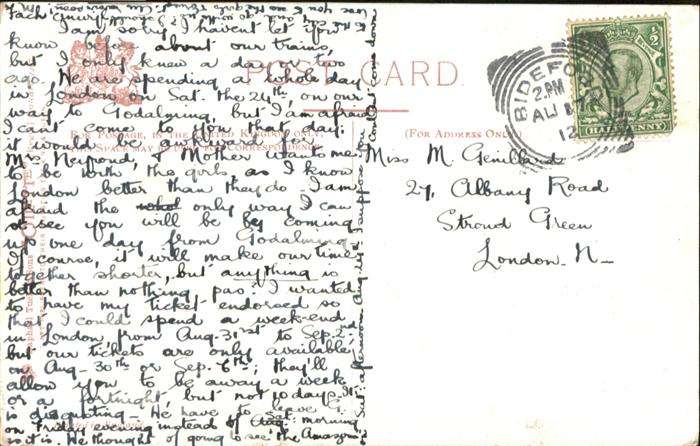 Fach Gwuif
I am sorry I haven't let you
know about our trains,
but I only knew a day or two
ago. We are spending a whole day
in London on Sat. the 24th, on our
way to Godalming, but I am afraid
I can't come to you that day:
it would be awkward.
Mrs & Mother want me
to be with the girls, as I know
London better than they do. I am
afraid the only way I can
see you will be by coming
up one day from Godalming.
Of course, it will make our time
together shorter, but anything is
better than nothing pas? I wanted
to have my ticket endorsed so
that I could spend a week-end
in London from Aug. 31st to Sep. 2nd
but our tickets are only available
on Aug. 30th or Sep. 6th; they'll
allow you to be away a week
or a fortnight, but not 10 days. It
is disgusting. We have to leave
on Friday evening instead of morning,
so it is. We thought of going to see the Amazons
Sat: afternoon Aug. I suppose you can't come down
POST CARD
FOR POSTAGE, IN THE UNITED KINGDOM ONLY,
SPACE MAY BE USED FOR CORRESPONDENCE
(FOR ADDRESS ONLY)
BIDEFORD
2.PM
AU 17
12
HALFPENNY
Miss M. Genillard
27, Albany Road
Stroud Green
London. N.